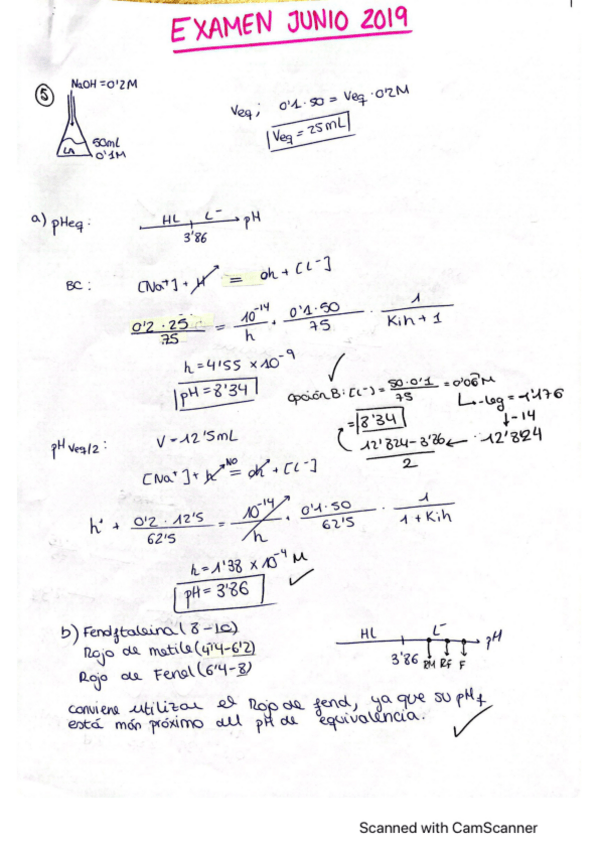 EXAMEN JUNIO 2019
⑤ NaOH = 0'2M
50mL
0'1M
Veq; 0'1 · 50 = Veq · 0'2M
Veq = 25mL
a) pHeq: HL L⁻ pH
3'86
BC: [Na⁺] + H = oh + [L⁻]
0'2 · 25 / 75 = 10⁻¹⁴ / h + 0'1 · 50 / 75 · 1 / K₁h + 1
h = 4'55 × 10⁻⁹
pH = 8'34
Opción B: [L⁻] = 50 · 0'1 / 75 = 0'06̂ M
-log = 1'176
-14
12'824
12'824 - 3'86 / 2
= 8'34
pH Veq/2: V = 12'5mL
[Na⁺] + h NO = oh + [L⁻]
h + 0'2 · 12'5 / 62'5 = 10⁻¹⁴ / h + 0'1 · 50 / 62'5 · 1 / 1 + K₁h
h = 1'38 × 10⁻⁴ M
pH = 3'86
b) Fenolftaleina (8-10)
Rojo de metilo (4'4-6'2)
Rojo de Fenol (6'4-8)
HL L⁻ pH
3'86 RM RF F
conviene utilizar el Rojo de fenol, ya que su pHf
está más próximo del pH de equivalencia.
Scanned with CamScanner